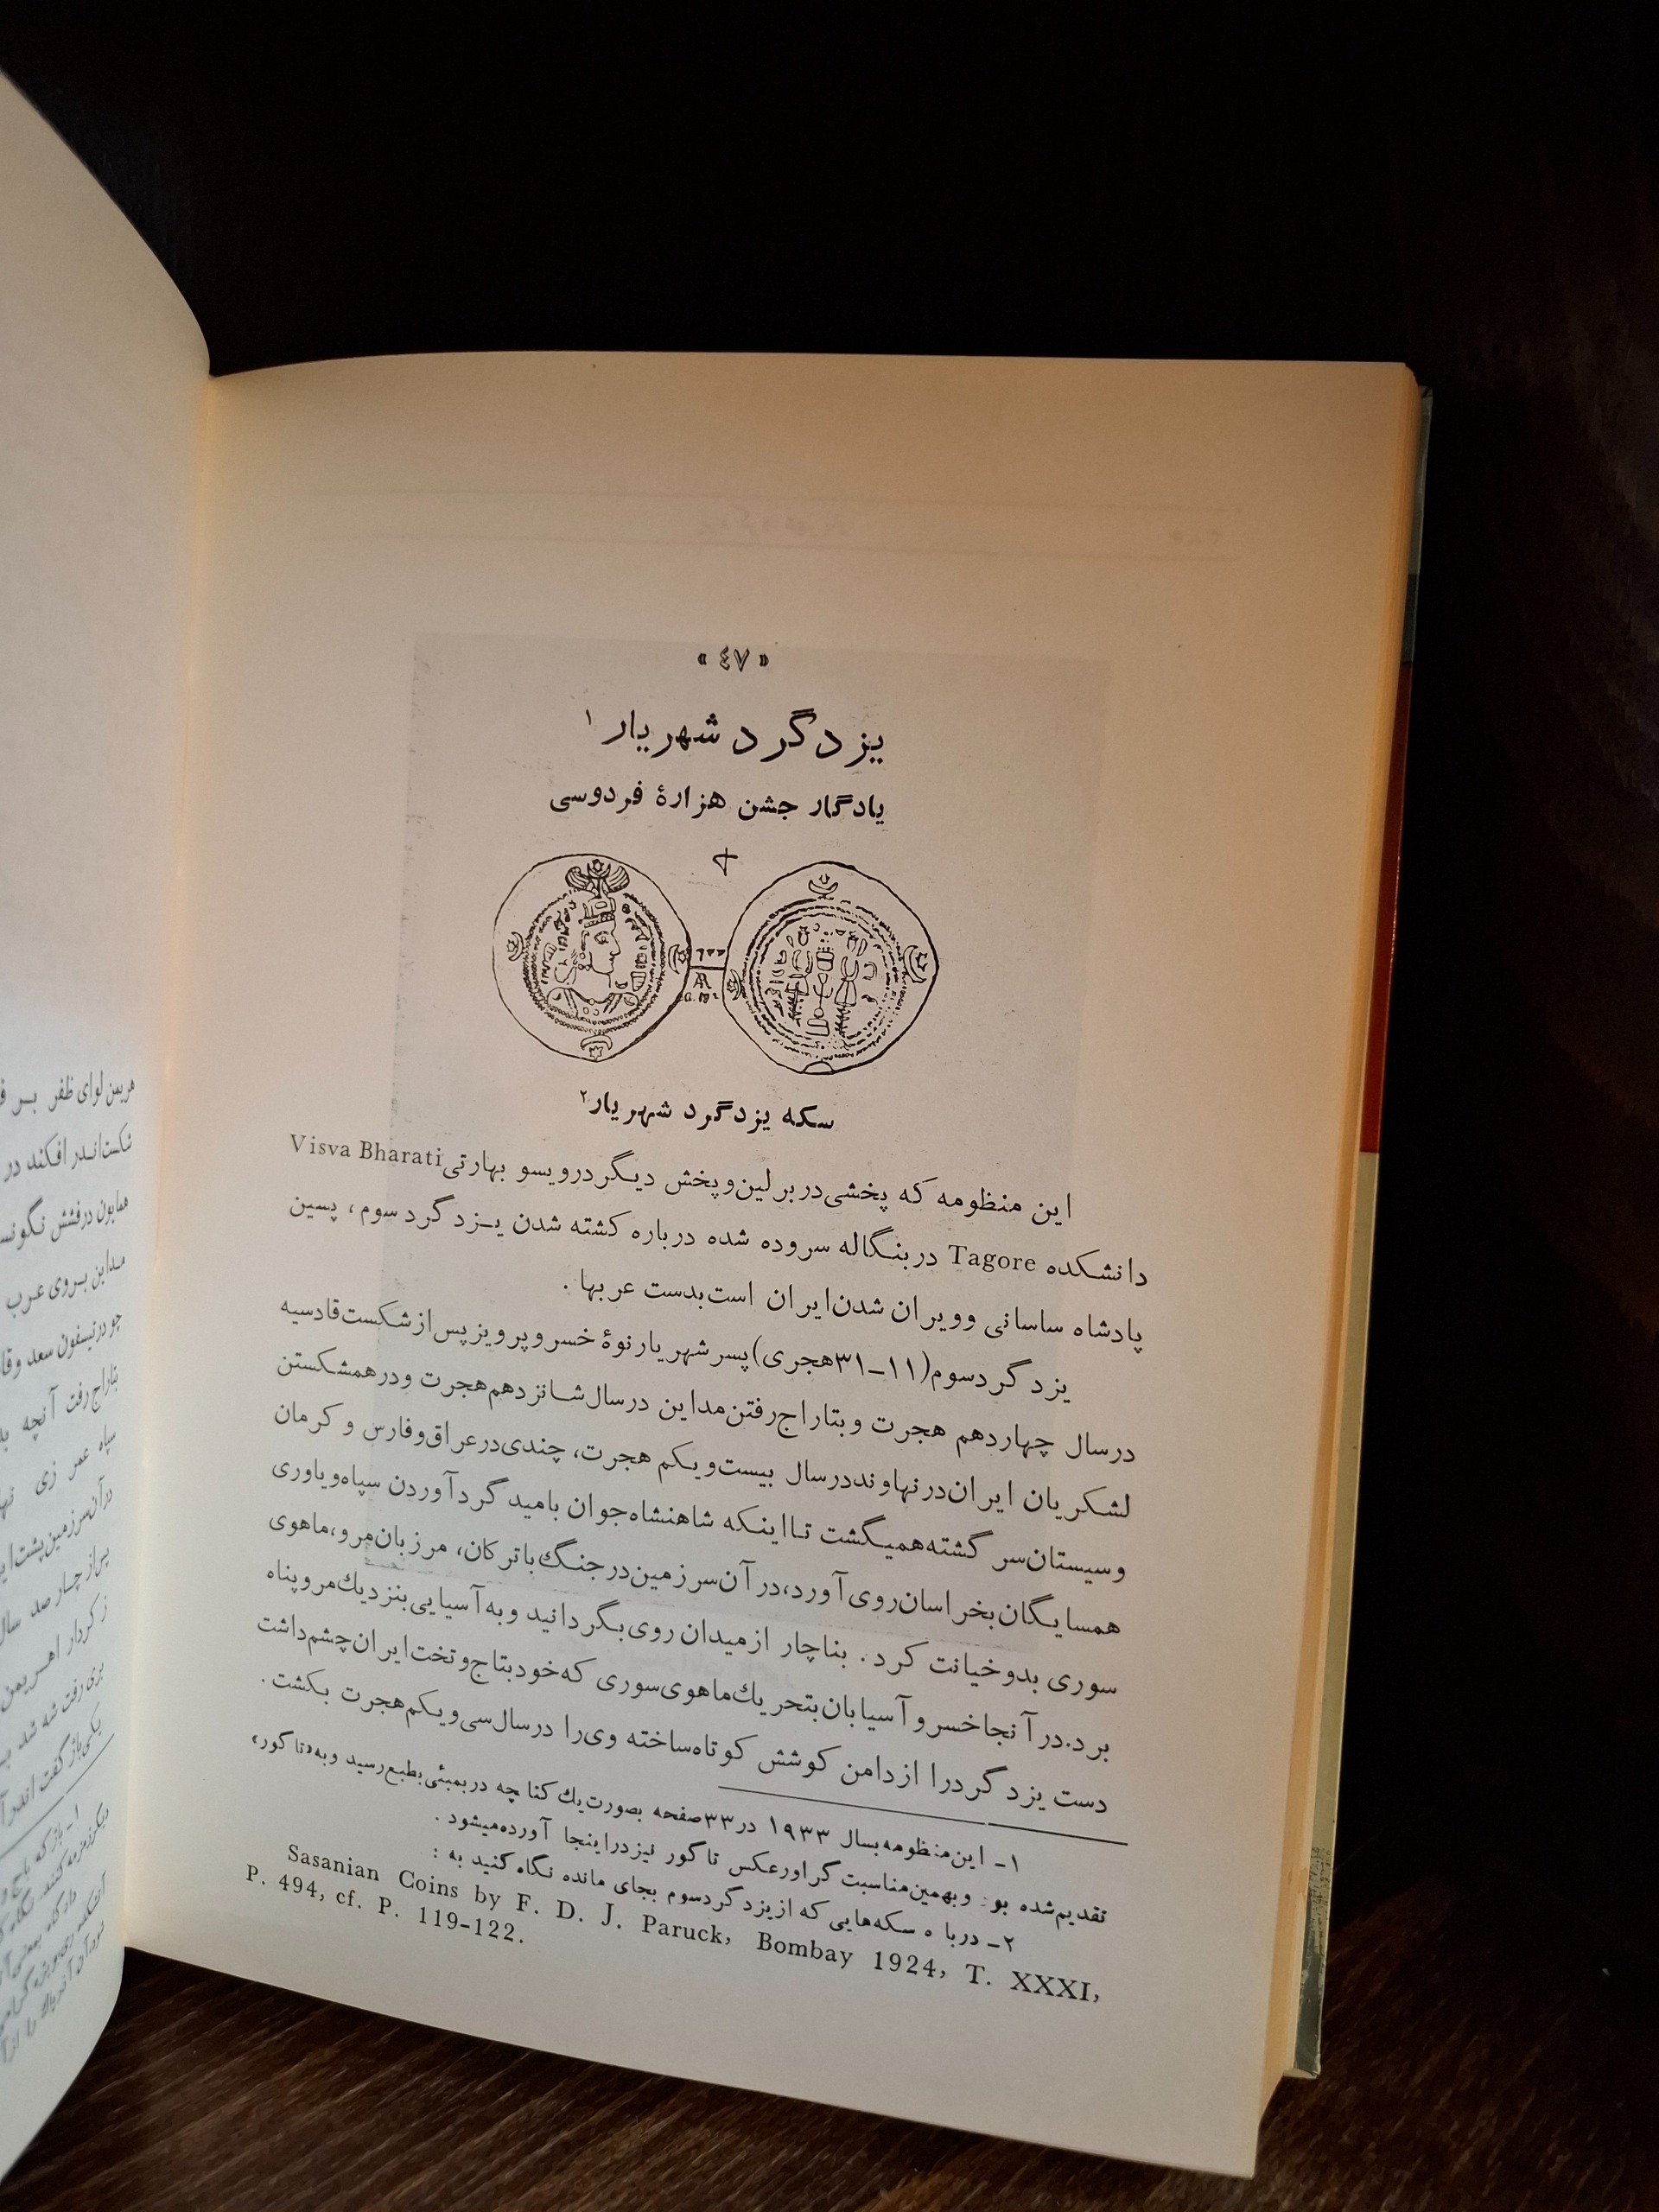 « ٤٧ »
یزدگرد شهریار ۱
یادگار جشن هزارهٔ فردوسی
سکه یزدگرد شهریار۲
این منظومه که پخشی دربرلین وپخش دیگردرویسو بهارتی Visva Bharati
دانشکده Tagore دربنگاله سروده شده درباره کشته شدن یـزدگردسوم، پسین
پادشاه ساسانی وویران شدن ایران است بدست عربها .
یزدگردسوم(۱۱ـ۳۱هجری)پسرشهریارنوهٔ خسروپرویزپس ازشکست قادسیه
درسال چهاردهم هجرت وبتاراج رفتن مداین درسال شانزدهم هجرت ودرهمشکستن
لشکریان ایران درنهاونددرسال بیست ویکم هجرت، چندی درعراق وفارس وکرمان
وسیستان سرگشته همیگشت تااینکه شاهنشاه جوان بامید گردآوردن سپاه ویاوری
همسایگان بخراسان روی آورد،درآن سرزمین درجنگ باترکان، مرزبان مرو،ماهوی
سوری بدوخیانت کرد. بناچار ازمیدان روی بگردانید وبه آسیایی بنزدیك مروپناه
برد.درآنجاخسرو آسیابان بتحریك ماهوی سوری که خودبتاج وتخت ایران چشم داشت
دست یزدگردرا ازدامن کوشش کوتاه ساخته وی را درسال سی ویکم هجرت بکشت.
۱ـ این منظومه بسال ۱۹۳۳ در۳۳صفحه بصورت یك کتا چه دربمبئی بطبع رسید وبه «تاگور»
تقدیم شده بو وبهمین مناسبت گراورعکس تاگور نیزدراینجا آورده میشود .
۲ـ دربا ه سکه هایی که ازیزدگردسوم بجای مانده نگاه کنید به :
Sasanian Coins by F. D. J. Paruck, Bombay 1924, T. XXXI,
P. 494, cf. P. 119-122.